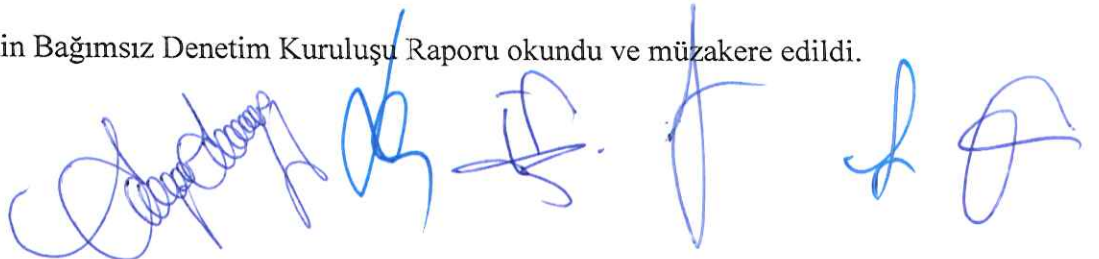 in Bağımsız Denetim Kuruluşu Raporu okundu ve müzakere edildi.